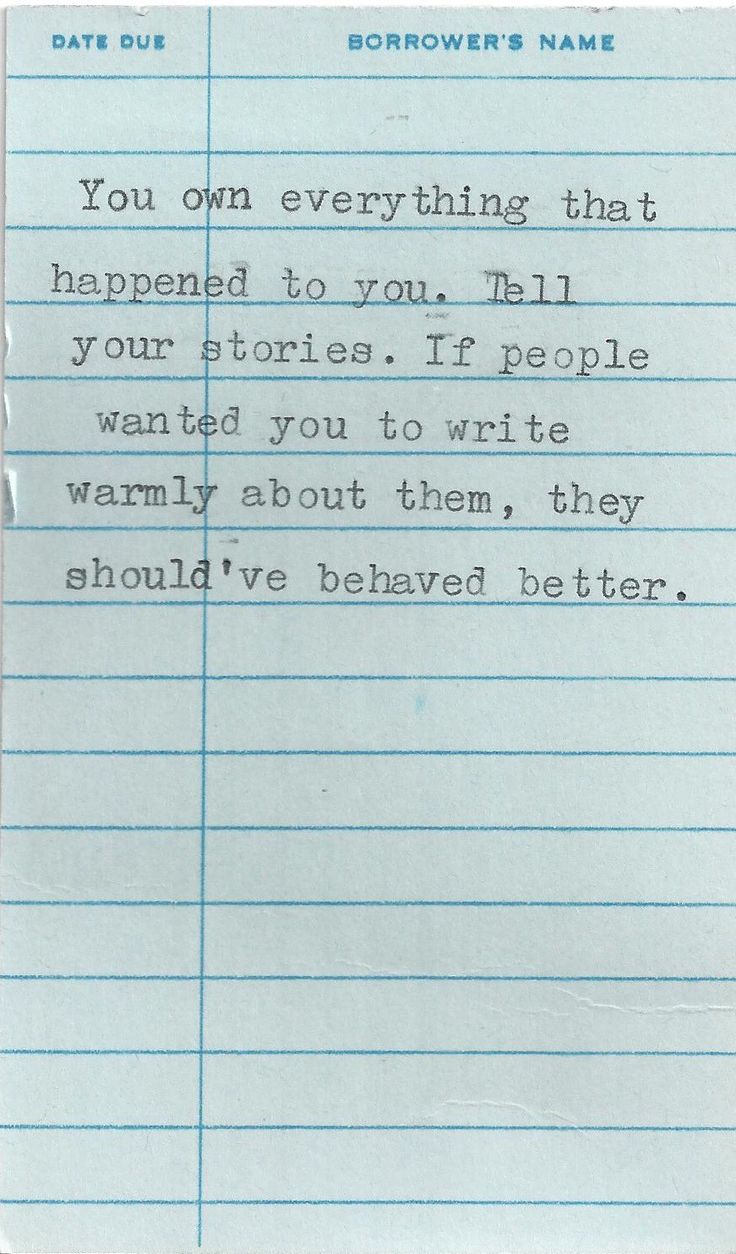 DATE DUE BORROWER'S NAME
You own everything that
happened to you. Tell
your stories. If people
wanted you to write
warmly about them, they
should've behaved better.